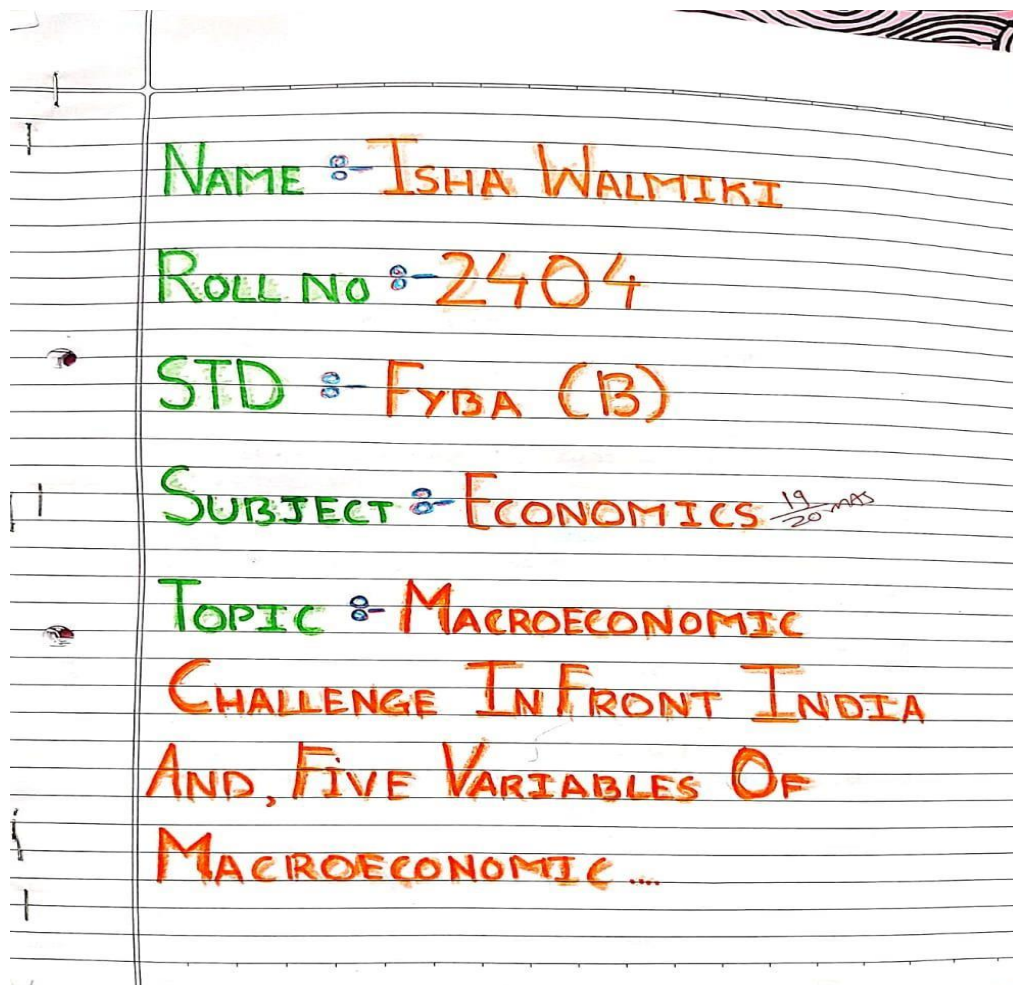 NAME :- ISHA WALMIKI
ROLL NO :- 2404
STD :- FYBA (B)
SUBJECT :- ECONOMICS 19/20
TOPIC :- MACROECONOMIC
CHALLENGE IN FRONT INDIA
AND, FIVE VARIABLES OF
MACROECONOMIC....